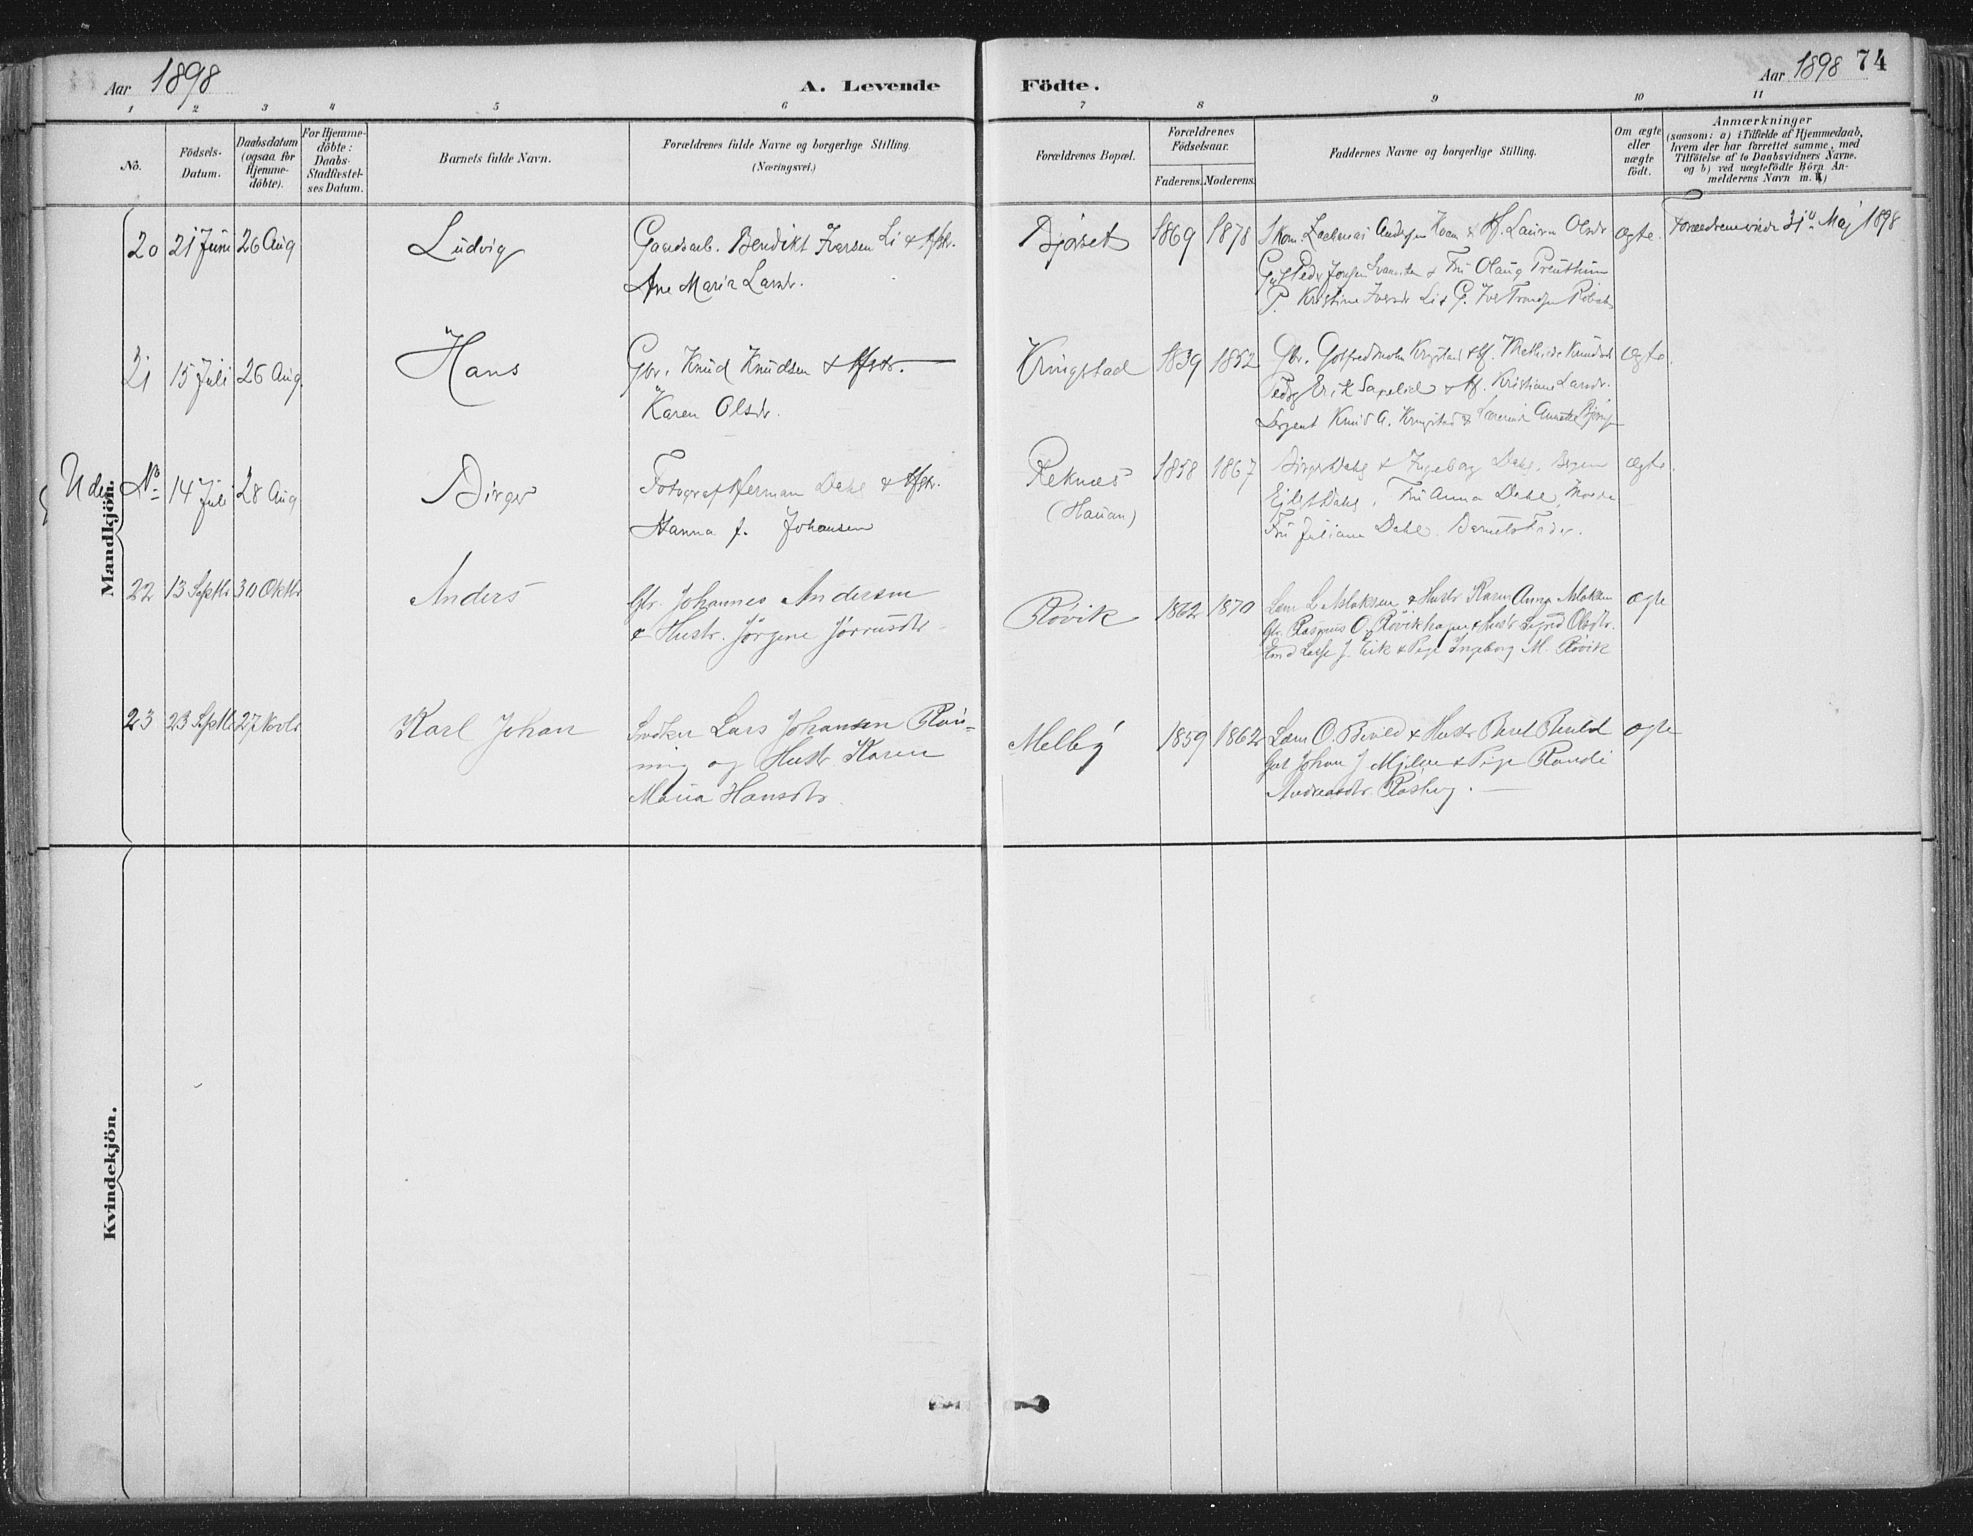 Aar 1898
A. Levende
Födte.
Aar 1898
74
1 2 3 4 5 6 7 8 9 10 11
No.
Födsels-
Datum.
Daabsdatum
(ogsaa for
Hjemme-
döbte).
For Hjemme-
döbte:
Daabs-
Stadfæstel-
ses Datum.
Barnets fulde Navn.
Forældrenes fulde Navne og borgerlige Stilling.
(Næringsvei.)
Forældrenes Bopæl.
Forældrenes
Födselsaar.
Faderens. Moderens.
Faddernes Navne og borgerlige Stilling.
Om ægte
eller
uægte
födt.
Anmærkninger
(saasom: a) i Tilfælde af Hjemmedaab,
hvem der har forrettet samme, med
Tilföielse af to Daabsvidners Navne.
og b) ved uægtefödte Börn An-
melderens Navn m. m.)
Mandkjön.
20 21 Juni 26 Aug Ludvig Gaardsarb. Benedikt Iversen Li & Hstr.
Ane Marie Larsdr.
Bjørset 1869 1878 Andersen & H. Laura Olsdr
& Fru Olaug
P. Kristine Iversdr Li & G. Iver
ægte. Forældrene viede 31te Maj 1898
21 15 Juli 26 Aug. Hans Gbr. Knud Knudsen & Hstr.
Karen Olsdr.
Kringstad 1839 1852 Gbr. Kringstad & H. Mathilde Knudsd
Erik & H. Kristiane Larsdr.
Sergent Knud A. Kringstad & Annette
ægte.
Uden No 14 Juli 28 Aug Birger Fotograf Herman Dahl & Hstr.
Hanna f. Johansen
Reknæs
(Hauan)
1858 1867 Birger Dahl & Ingeborg Dahl, Bergen
Dahl, Fru Anna Dahl,
Fru Juliane Dahl. Barnets Fader.
ægte.
22 13 Septbr 30 Oktbr Anders Gbr. Johannes Andersen
& Hustr. Jørgine
Røvik 1862 1870 L. Aslaksen & Hustr Karen Anna Aslaksen
Gbr. Rasmus O. Røvikhagen & Hustr Sigrid Olsdtr.
J. & Pige Ingeborg M. Røvik
ægte
23 23 Septbr 27 Novbr Karl Johan Snedker Lars Johansen Røn-
ning og Hustr Karen
Maria Hansdtr.
Melby 1859 1862 O. & Hustr Beret
Johan J. Mjelve & Pige Randi
Andreasdtr.
ægte
Kvindekjön.